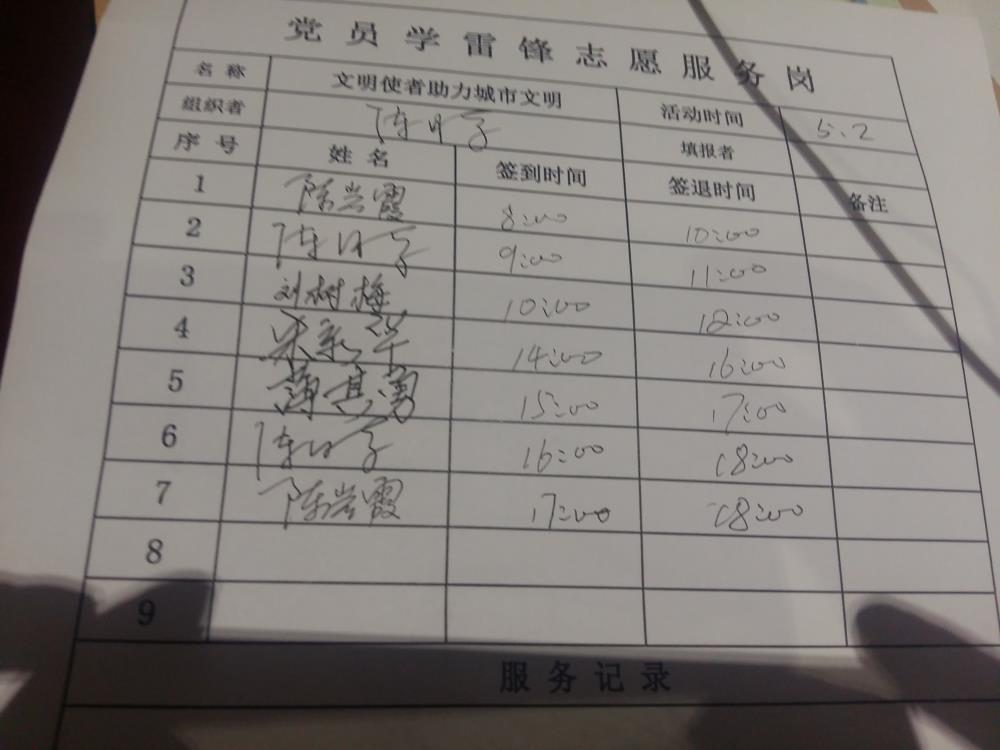 党员学雷锋志愿服务岗
名称 文明使者助力城市文明 活动时间 5.2
组织者 填报者
序号 姓名 签到时间 签退时间 备注
1 陈兰霞 8:00 10:00
2 9:00 11:00
3 刘树梅 10:00 12:00
4 14:00 16:00
5 薄其勇 15:00 17:00
6 16:00 18:00
7 陈兰霞 17:00 18:00
8
9
服务记录